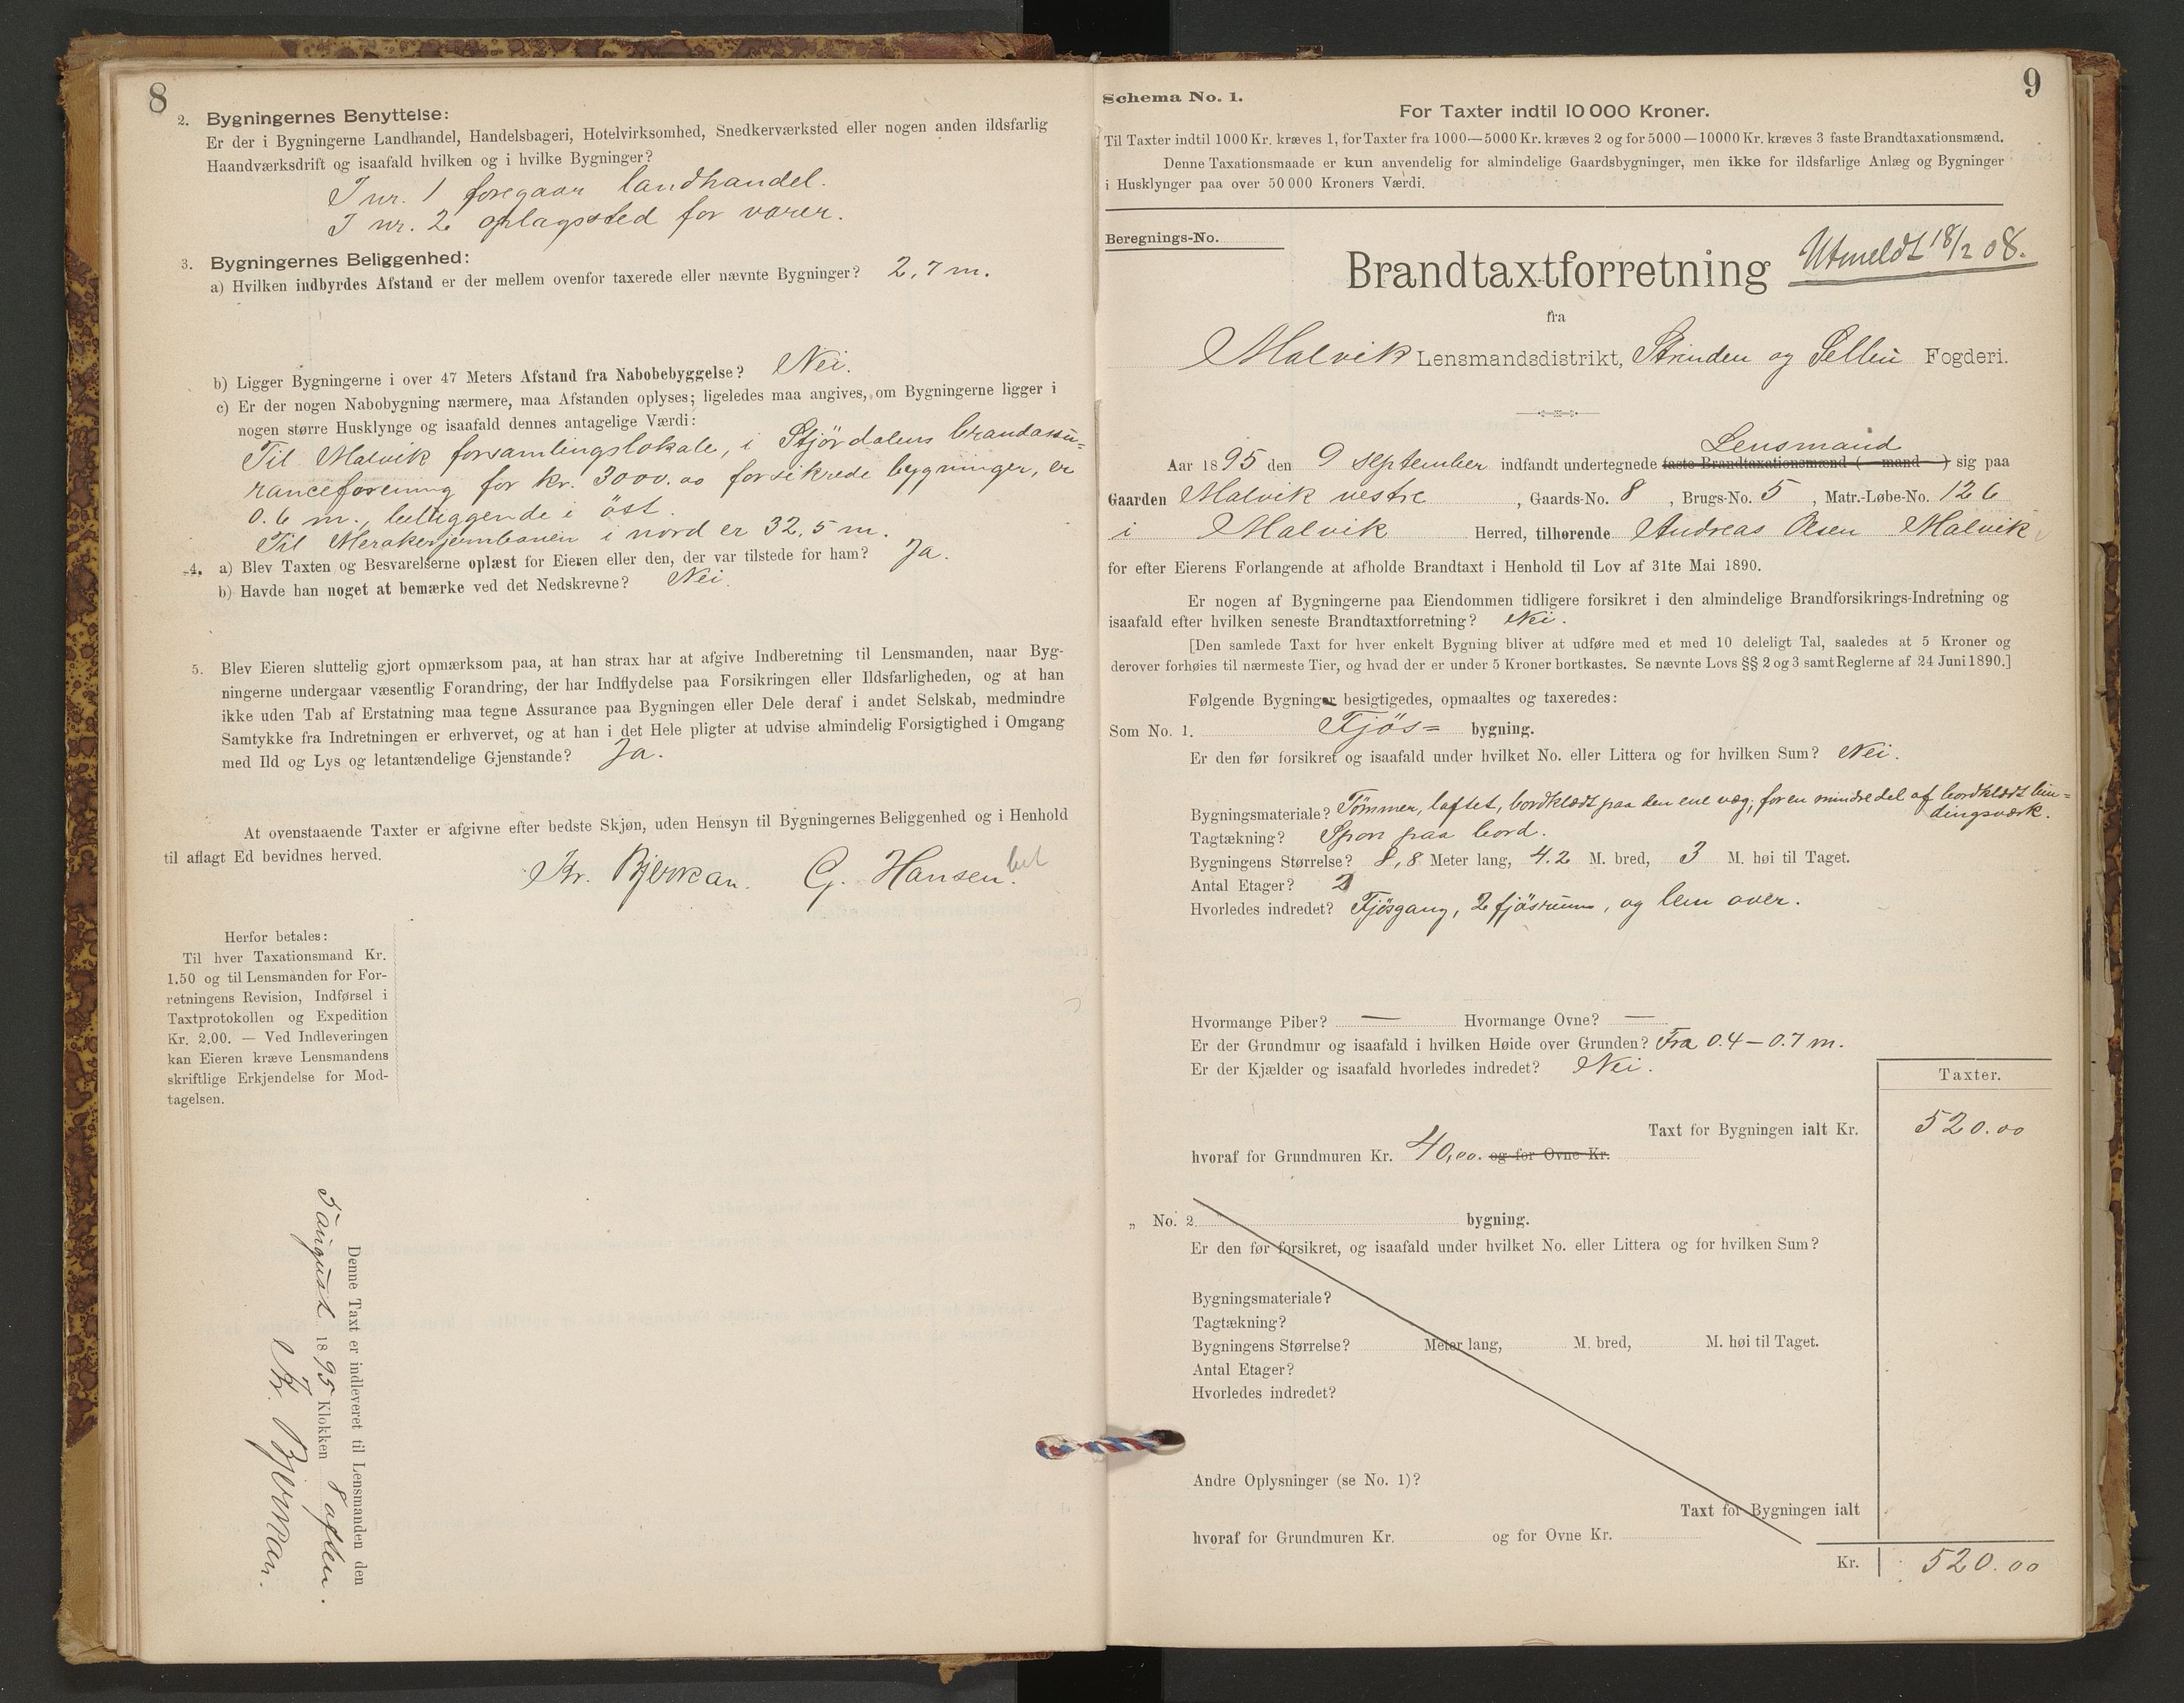 8
2. Bygningernes Benyttelse:
Er der i Bygningerne Landhandel, Handelsbageri, Hotelvirksomhed, Snedkerværksted eller nogen anden ildsfarlig
Haandværksdrift og isaafald hvilken og i hvilke Bygninger?
I nr. 1 foregaar landhandel.
I nr. 2 oplagssted for varer.
3. Bygningernes Beliggenhed:
a) Hvilken indbyrdes Afstand er der mellem ovenfor taxerede eller nævnte Bygninger? 2,7 m.
b) Ligger Bygningerne i over 47 Meters Afstand fra Nabobebyggelse? Nei.
c) Er der nogen Nabobygning nærmere, maa Afstanden oplyses; ligeledes maa angives, om Bygningerne ligger i
nogen større Husklynge og isaafald dennes antagelige Værdi:
Til Malvik forsamlingslokale, i Stjördalens brandassu-
ranceforening for kr. 3000.00 forsikrede bygninger, er
0.6 m., beliggende i öst.
Til Merakerjernbanen i nord er 32,5 m.
4. a) Blev Taxten og Besvarelserne oplæst for Eieren eller den, der var tilstede for ham? Ja.
b) Havde han noget at bemærke ved det Nedskrevne? Nei.
5. Blev Eieren sluttelig gjort opmærksom paa, at han strax har at afgive Indberetning til Lensmanden, naar Byg-
ningerne undergaar væsentlig Forandring, der har Indflydelse paa Forsikringen eller Ildsfarligheden, og at han
ikke uden Tab af Erstatning maa tegne Assurance paa Bygningen eller Dele deraf i andet Selskab, medmindre
Samtykke fra Indretningen er erhvervet, og at han i det Hele pligter at udvise almindelig Forsigtighed i Omgang
med Ild og Lys og letantændelige Gjenstande? Ja.
At ovenstaaende Taxter er afgivne efter bedste Skjøn, uden Hensyn til Bygningernes Beliggenhed og i Henhold
til aflagt Ed bevidnes herved.
Kr. Bjerkan. G. Hansen. bet
Herfor betales:
Til hver Taxationsmand Kr.
1.50 og til Lensmanden for For-
retningens Revision, Indførsel i
Taxtprotokollen og Expedition
Kr. 2.00. — Ved Indleveringen
kan Eieren kræve Lensmandens
skriftlige Erkjendelse for Mod-
tagelsen.
Denne Taxt er indleveret til Lensmanden den
august 1895 Klokken 8 aften.
Kr. Bjerkan.
9
Schema No. 1.
For Taxter indtil 10 000 Kroner.
Til Taxter indtil 1000 Kr. kræves 1, for Taxter fra 1000—5000 Kr. kræves 2 og for 5000—10000 Kr. kræves 3 faste Brandtaxationsmænd.
Denne Taxationsmaade er kun anvendelig for almindelige Gaardsbygninger, men ikke for ildsfarlige Anlæg og Bygninger
i Husklynger paa over 50 000 Kroners Værdi.
Beregnings-No.
Brandtaxtforretning Utmeldt 18/2 08.
fra
Malvik Lensmandsdistrikt, Strinden og Selbu Fogderi.
Lensmand
Aar 1895 den 9 september indfandt undertegnede faste Brandtaxationsmænd ( mand ) sig paa
Gaarden Malvik vestre, Gaards-No. 8, Brugs-No. 5, Matr.-Løbe-No. 126
i Malvik Herred, tilhørende Andreas Olsen Malvik
for efter Eierens Forlangende at afholde Brandtaxt i Henhold til Lov af 31te Mai 1890.
Er nogen af Bygningerne paa Eiendommen tidligere forsikret i den almindelige Brandforsikrings-Indretning og
isaafald efter hvilken seneste Brandtaxtforretning? Nei.
[Den samlede Taxt for hver enkelt Bygning bliver at udføre med et med 10 deleligt Tal, saaledes at 5 Kroner og
derover forhøies til nærmeste Tier, og hvad der er under 5 Kroner bortkastes. Se nævnte Lovs §§ 2 og 3 samt Reglerne af 24 Juni 1890.]
Følgende Bygninger besigtigedes, opmaaltes og taxeredes:
Som No. 1. Fjös= bygning.
Er den før forsikret og isaafald under hvilket No. eller Littera og for hvilken Sum? Nei.
Bygningsmateriale? Tömmer, laftet, bordklædt paa den ene væg, for en mindre del af bordklædt bin-
dingsværk.
Tagtækning? Spon paa bord.
Bygningens Størrelse? 8,8 Meter lang, 4.2 M. bred, 3 M. høi til Taget.
Antal Etager? 2
Hvorledes indredet? Fjösgang, 2 fjösrum, og lem over.
Hvormange Piber? — Hvormange Ovne? —
Er der Grundmur og isaafald i hvilken Høide over Grunden? Fra 0.4—0.7 m.
Er der Kjælder og isaafald hvorledes indredet? Nei.
Taxter.
Taxt for Bygningen ialt Kr. 520.00
hvoraf for Grundmuren Kr. 40,00. og for Ovne Kr.
„ No. 2 bygning.
Er den før forsikret, og isaafald under hvilket No. eller Littera og for hvilken Sum?
Bygningsmateriale?
Tagtækning?
Bygningens Størrelse? Meter lang, M. bred, M. høi til Taget.
Antal Etager?
Hvorledes indredet?
Andre Oplysninger (se No. 1)?
Taxt for Bygningen ialt
hvoraf for Grundmuren Kr. og for Ovne Kr.
Kr. 520.00